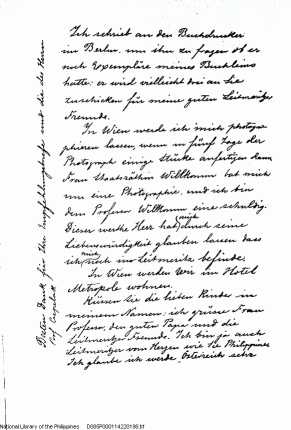 Ich schrieb an den Buchdrucker
in Berlin, um ihn zu fragen ob er
noch Exemplare meines Buchleins
hatte; er wird vielleicht drei an Sie
zuschicken für meine guten Leitmeritzer
Freunde.
In Wien werde ich mich photogra-
phieren lassen, wenn in fünf Tage der
Photograph einige Stücke anfertigen kann
Frau Staatsräthin Willkomm bat mich
um eine Photographie, und ich bin
dem Professor Willkomm eine schuldig.
Dieser werthe Herr hat mich durch seine
Liebenswürdigkeit glauben lassen dass
ich mich noch in Leitmeritz befinde.
In Wien werden wir im Hotel
Metropole wohnen.
Küssen Sie die lieben Kinder in
meinem Namen; ich grüsse Frau
Professor, den guten Papa und die
Leitmeritzer Freunde. Ich bin ja auch
Leitmeritzer vom Herzen wie Sie Philippiner
Ich glaube ich werde Österreich sehr
Vielen Dank für Ihre Empfehlungskarte und die der Herrn
Prof.
National Library of the Philippines D685P000114220198.tif